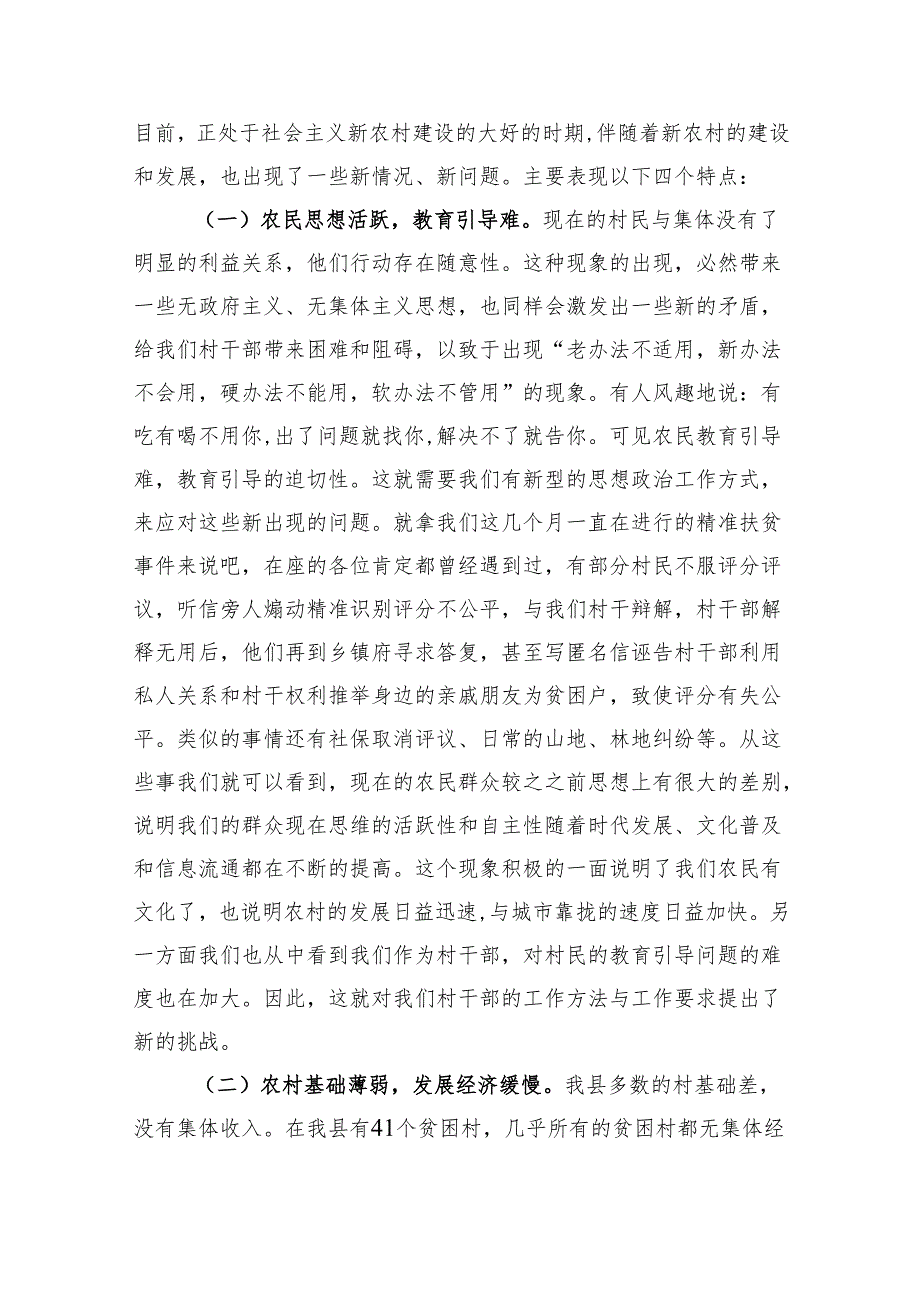 目前，正处于社会主义新农村建设的大好的时期,伴随着新农村的建设
和发展，也出现了一些新情况、新问题。主要表现以下四个特点：
（一）农民思想活跃，教育引导难。现在的村民与集体没有了
明显的利益关系，他们行动存在随意性。这种现象的出现，必然带来
一些无政府主义、无集体主义思想，也同样会激发出一些新的矛盾，
给我们村干部带来困难和阻碍，以致于出现“老办法不适用，新办法
不会用，硬办法不能用，软办法不管用”的现象。有人风趣地说：有
吃有喝不用你,出了问题就找你,解决不了就告你。可见农民教育引导
难，教育引导的迫切性。这就需要我们有新型的思想政治工作方式，
来应对这些新出现的问题。就拿我们这几个月一直在进行的精准扶贫
事件来说吧，在座的各位肯定都曾经遇到过，有部分村民不服评分评
议，听信旁人煽动精准识别评分不公平，与我们村干辩解，村干部解
释无用后，他们再到乡镇府寻求答复，甚至写匿名信诬告村干部利用
私人关系和村干权利推举身边的亲戚朋友为贫困户，致使评分有失公
平。类似的事情还有社保取消评议、日常的山地、林地纠纷等。从这
些事我们就可以看到，现在的农民群众较之之前思想上有很大的差别，
说明我们的群众现在思维的活跃性和自主性随着时代发展、文化普及
和信息流通都在不断的提高。这个现象积极的一面说明了我们农民有
文化了，也说明农村的发展日益迅速,与城市靠拢的速度日益加快。另
一方面我们也从中看到我们作为村干部，对村民的教育引导问题的难
度也在加大。因此，这就对我们村干部的工作方法与工作要求提出了
新的挑战。
（二）农村基础薄弱，发展经济缓慢。我县多数的村基础差，
没有集体收入。在我县有41个贫困村，几乎所有的贫困村都无集体经